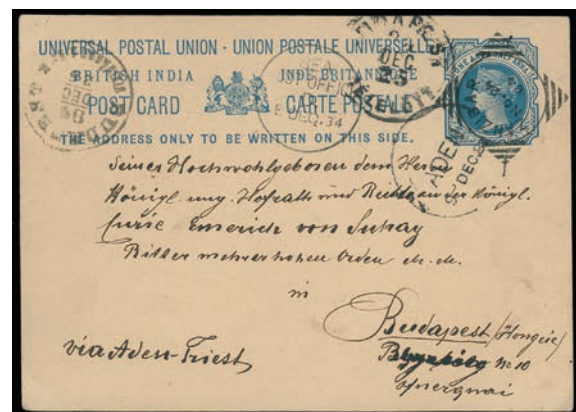 UNIVERSAL POSTAL UNION - UNION POSTALE UNIVERSELLE
BRITISH INDIA INDE BRITANNIQUE
POST CARD CARTE POSTALE
THE ADDRESS ONLY TO BE WRITTEN ON THIS SIDE.
SEA
POST OFFICE
DEC
ADEN
DEC
ZANZIBAR
Seiner Hochwohlgeboren dem Herrn
Königl. ung. Hofrath und Richter an der Königl.
Curie Emerich von Suhay
Ritter mehrer hohen Orden etc. etc.
in
Budapest (Hongrie)
No 10
via Aden-Triest